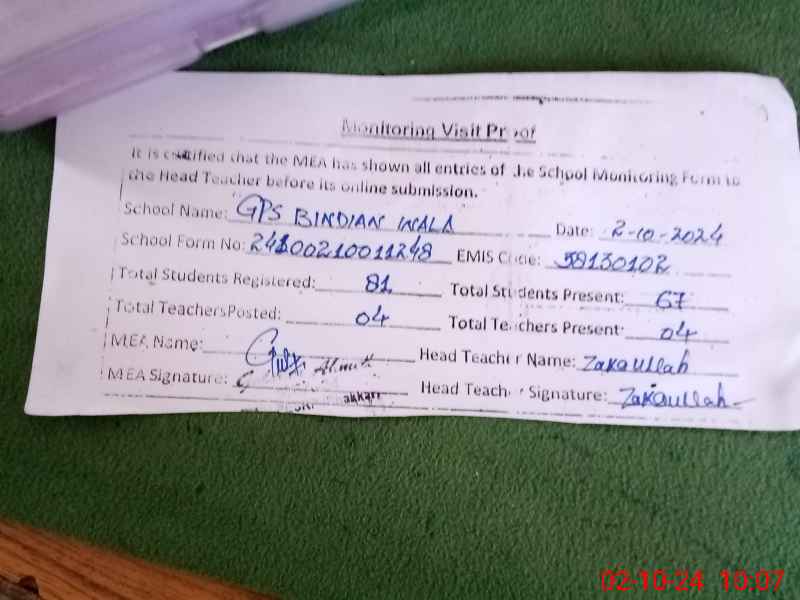 Monitoring Visit Proof
It is certified that the MEA has shown all entries of the School Monitoring Form to
the Head Teacher before its online submission.
School Name: GPS BINDIAN WALA Date: 2-10-2024
School Form No: 24100210011248 EMIS Code: 38130102
Total Students Registered: 81 Total Students Present: 67
Total TeachersPosted: 04 Total Teachers Present: 04
MEA Name: Head Teacher Name: Zakaullah
MEA Signature: Head Teacher Signature: Zakaullah
02-10-24 10:07